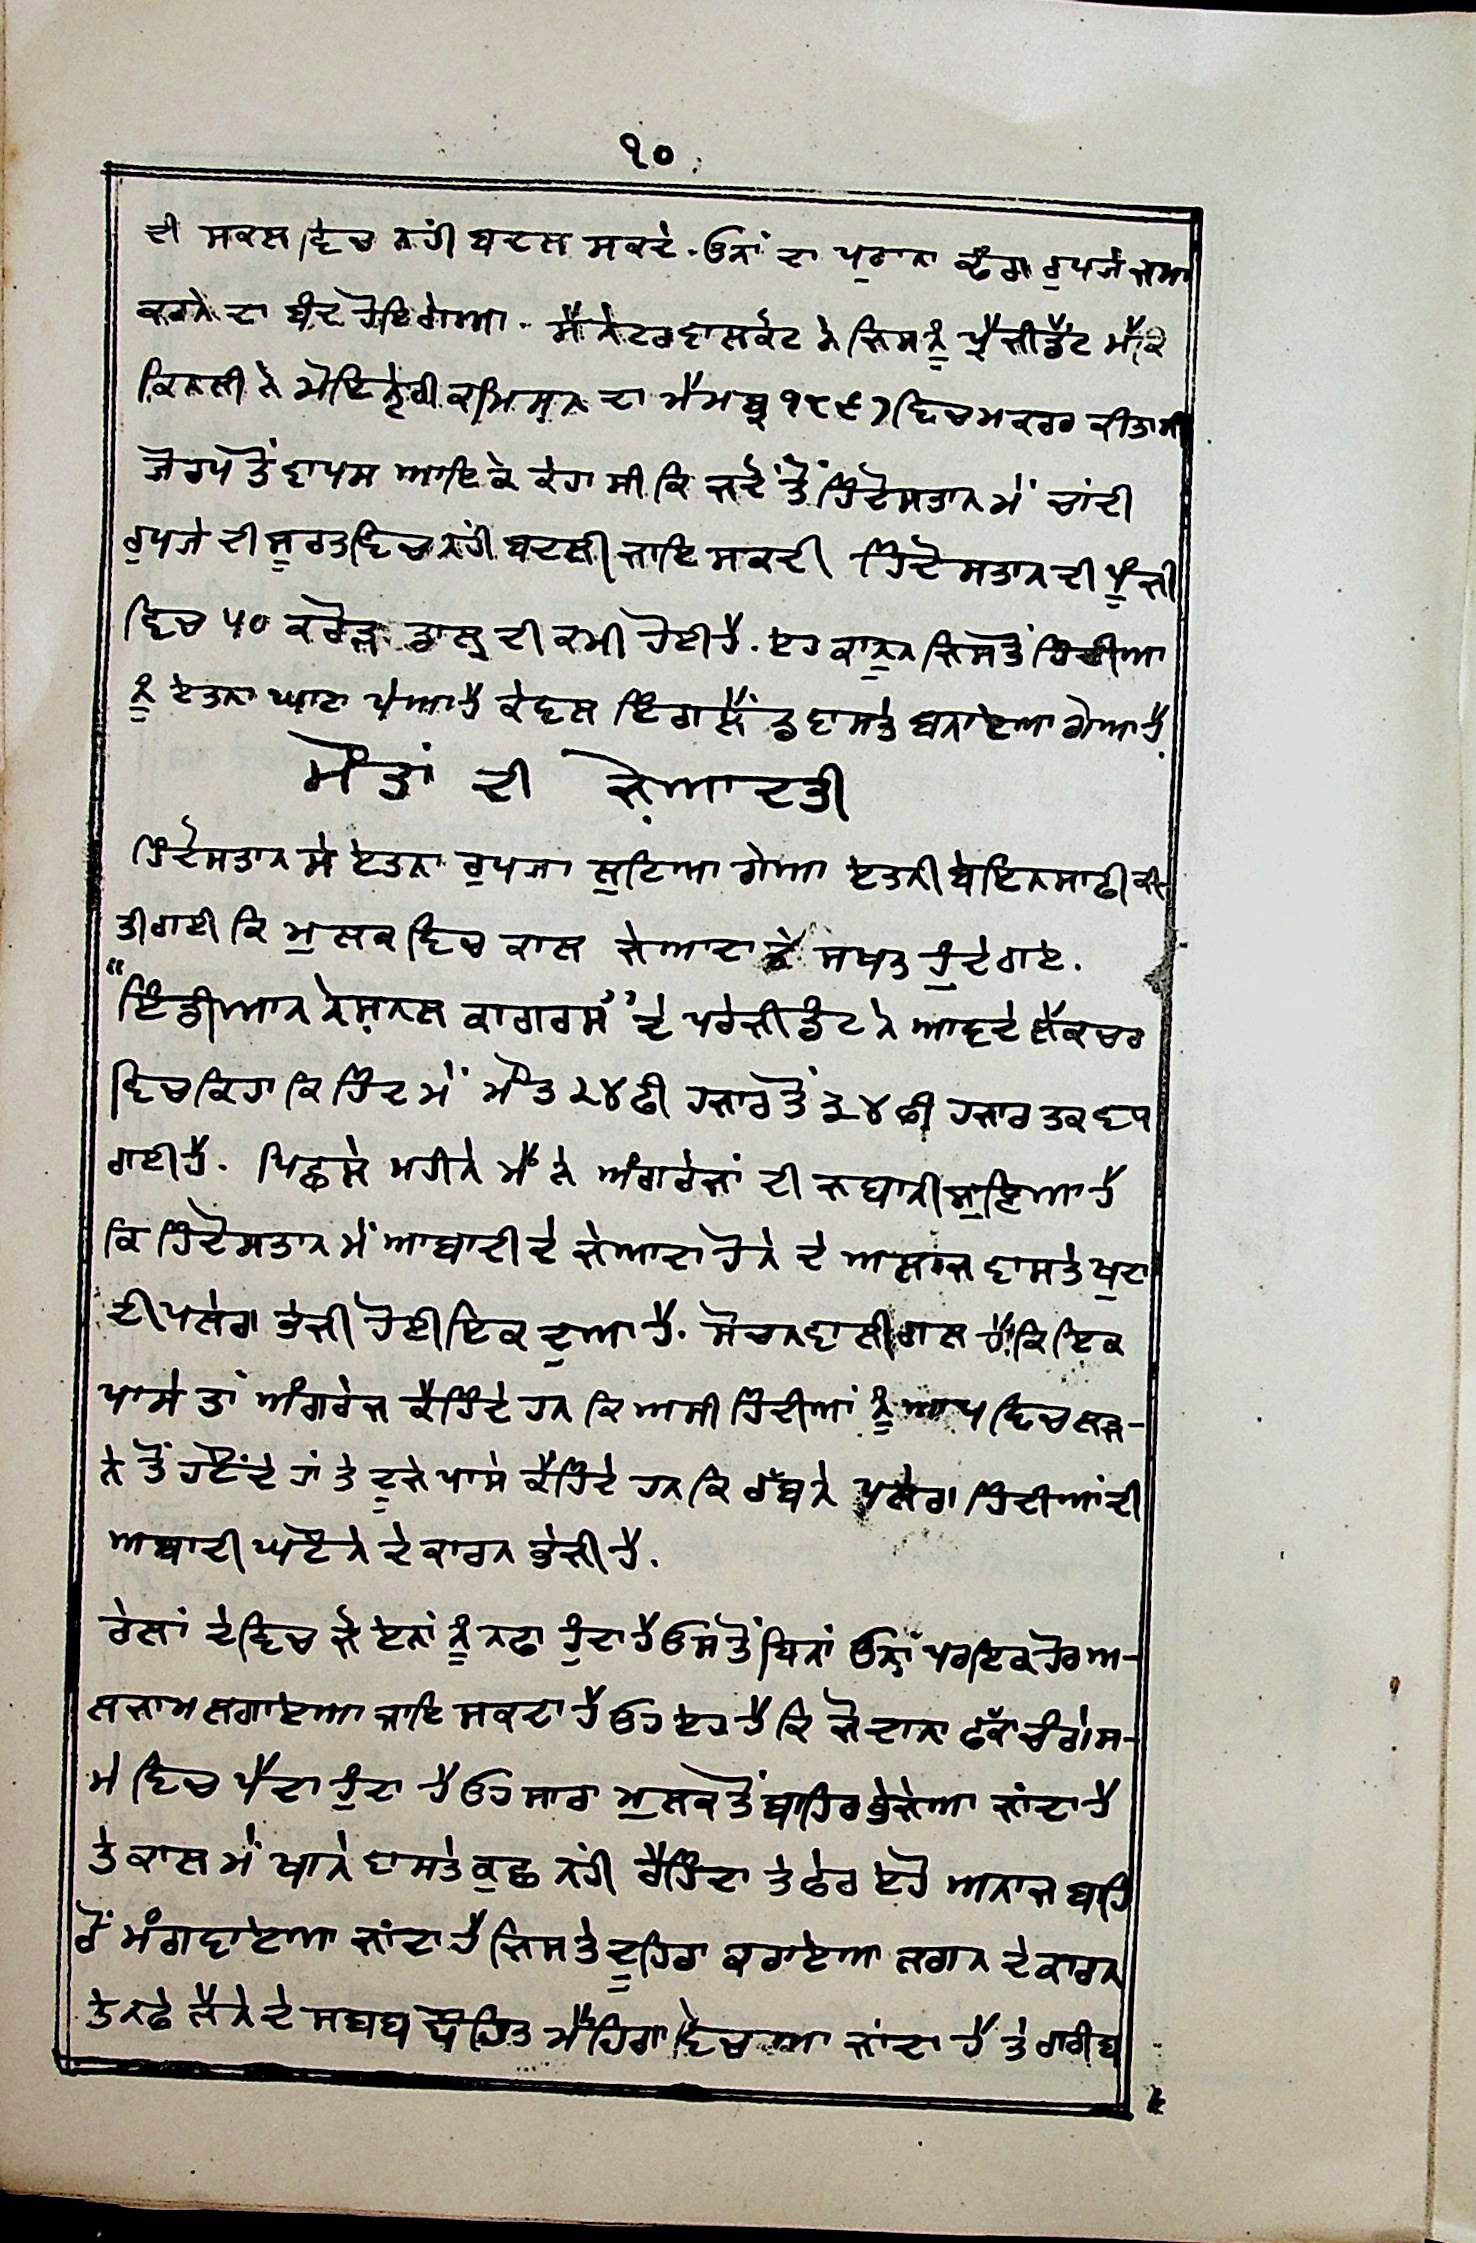 ੧੦
ਦੀ ਸਕਲ ਵਿਚ ਨਹੀ ਬਦਲ ਸਕਦੇ. ਓਨਾਂ ਦਾ ਪੁਰਾਨਾ ਢੰਗ ਰੁਪਯੇ ਜਮਾ
ਕਰਨੇ ਦਾ ਬੰਦ ਹੋਇਗੇਆ. ਸੈਨੇਟਰ ਵਾਲਕੋਟ ਨੇ ਜਿਸਨੂੰ ਪ੍ਰੈਜੀਡੈਂਟ ਮੈਕ
ਕਿਨਲੀ ਨੇ ਮੋਇਨੇਟਰੀ ਕਮਿਸ਼ਨ ਦਾ ਮੈਮਬ੍ਰ ੧੮੯੭ ਵਿਚ ਮਕਰਰ ਕੀਤਾ ਸੀ
ਜੋਰਪ ਤੋਂ ਵਾਪਸ ਆਇਕੇ ਕੇਹਾ ਸੀ ਕਿ ਜਦੋਂ ਤੋਂ ਹਿੰਦੋਸਤਾਨ ਮੇਂ ਚਾਂਦੀ
ਰੁਪਜੇ ਦੀ ਸੂਰਤ ਵਿਚ ਨਹੀ ਬਦਲੀ ਜਾਇ ਸਕਦੀ ਹਿੰਦੋਸਤਾਨ ਦੀ ਪੂੰਜੀ
ਵਿਚ ੫੦ ਕਰੋੜ ਡਾਲ੍ਰ ਦੀ ਕਮੀ ਹੋਈਹੈ. ਏਹ ਕਾਨੂਨ ਜਿਸਤੋਂ ਹਿੰਦੀਆ
ਨੂੰ ਏਤਨਾ ਘਾਟਾ ਪੇਆਹੈ ਕੇਵਲ ਇੰਗਲੈਂਡ ਵਾਸਤੇ ਬਨਾਏਆ ਗੇਆਹੈ.
ਮੌਤਾਂ ਦੀ ਜ਼ੇਆਦਤੀ
ਹਿੰਦੋਸਤਾਨ ਸੇ ਏਤਨਾ ਰੁਪਜਾ ਲੁਟਿਆ ਗੇਆ ਏਤਨੀ ਬੇਇਨਸਾਫੀ ਕੀ-
ਤੀਗਈ ਕਿ ਮੁਲਕ ਵਿਚ ਕਾਲ ਜੇਆਦਾ ਤੇ ਸਖਤ ਹੁੰਦੇਗਏ.
“ਇੰਡੀਆਨ ਨੇਸ਼ਨਲ ਕਾਗਰਸ” ਦੇ ਪਰੇਜੀਡੰਟ ਨੇ ਆਵਦੇ ਲੈਕਚਰ
ਵਿਚ ਕਿਹਾ ਕਿ ਹਿੰਦ ਮੇਂ ਮੌਤ ੨੪ ਫੀ ਹਜਾਰ ਤੋਂ ੩੪ ਫੀ ਹਜਾਰ ਤਕ ਵਧ
ਗਈਹੈ. ਪਿਛਲੇ ਮਹੀਨੇ ਮੈਂ ਨੇ ਅੰਗਰੇਜਾਂ ਦੀ ਜਬਾਨੀ ਸੁਣਿਆ ਹੈ
ਕਿ ਹਿੰਦੋਸਤਾਨ ਮੇਂ ਆਬਾਦੀ ਦੇ ਜੇਆਦਾ ਹੋਨੇ ਦੇ ਅਲਾਜ ਵਾਸਤੇ ਖੁਦਾ
ਦੀ ਪਲੇਗ ਭੇਜੀ ਹੋਈ ਇਕ ਦੁਆ ਹੈ. ਸੋਚਨਵਾਲੀ ਗਲ ਹੈ ਕਿ ਇਕ
ਪਾਸੇ ਤਾਂ ਅੰਗਰੇਜ ਕੈਹਿੰਦੇ ਹਨ ਕਿ ਅਸੀ ਹਿੰਦੀਆਂ ਨੂੰ ਆਪ ਵਿਚ ਲੜ-
ਨੇ ਤੋਂ ਹਟੌਂਦੇ ਹਾਂ ਤੇ ਦੂਜੇ ਪਾਸੇ ਕੈਹਿੰਦੇ ਹਨ ਕਿ ਰੱਬ ਨੇ ਪਲੇਗ ਹਿੰਦੀਆਂ ਦੀ
ਅਬਾਦੀ ਘਟੌਨੇ ਦੇ ਕਾਰਨ ਭੇਜੀਹੈ.
ਰੇਲਾਂ ਦੇ ਵਿਚ ਜੋ ਏਨਾਂ ਨੂੰ ਨਫਾ ਹੁੰਦਾਹੈ ਉਸਤੋਂ ਬਿਨਾਂ ਓਨਾਂ ਪਰ ਇਕ ਹੋਰ ਅ-
ਲਜਾਮ ਲਗਾਏਆ ਜਾਇ ਸਕਦਾ ਹੈ ਓਹ ਏਹ ਹੈ ਕਿ ਜੋ ਦਾਨਾ ਫੱਕਾ ਚੰਗੇ ਸ-
ਮੇ ਵਿਚ ਪੈਦਾ ਹੁੰਦਾ ਹੈ ਓਹ ਸਾਰਾ ਮੁਲਕ ਤੋਂ ਬਾਹਿਰ ਭੇਜੇਆ ਜਾਂਦਾ ਹੈ
ਤੇ ਕਾਲ ਮੇਂ ਖਾਨੇ ਵਾਸਤੇ ਕੁਛ ਨਹੀ ਰੈਹਿੰਦਾ ਤੇ ਫੇਰ ਏਹੋ ਅਨਾਜ ਬਾਹਿ
ਰੋਂ ਮੰਗਵਾਏਆ ਜਾਂਦਾ ਹੈ ਜਿਸਤੇ ਦੂਹਿਰਾ ਕਰਾਏਆ ਲਗਨ ਦੇ ਕਾਰਨ
ਤੇ ਨਫੇ ਲੈਨੇ ਦੇ ਸਬਬ ਬੌਹਿਤ ਮੈਂਹਿਗਾ ਵੇਚਆ ਜਾਂਦਾ ਹੈ ਤੇ ਗਰੀਬ